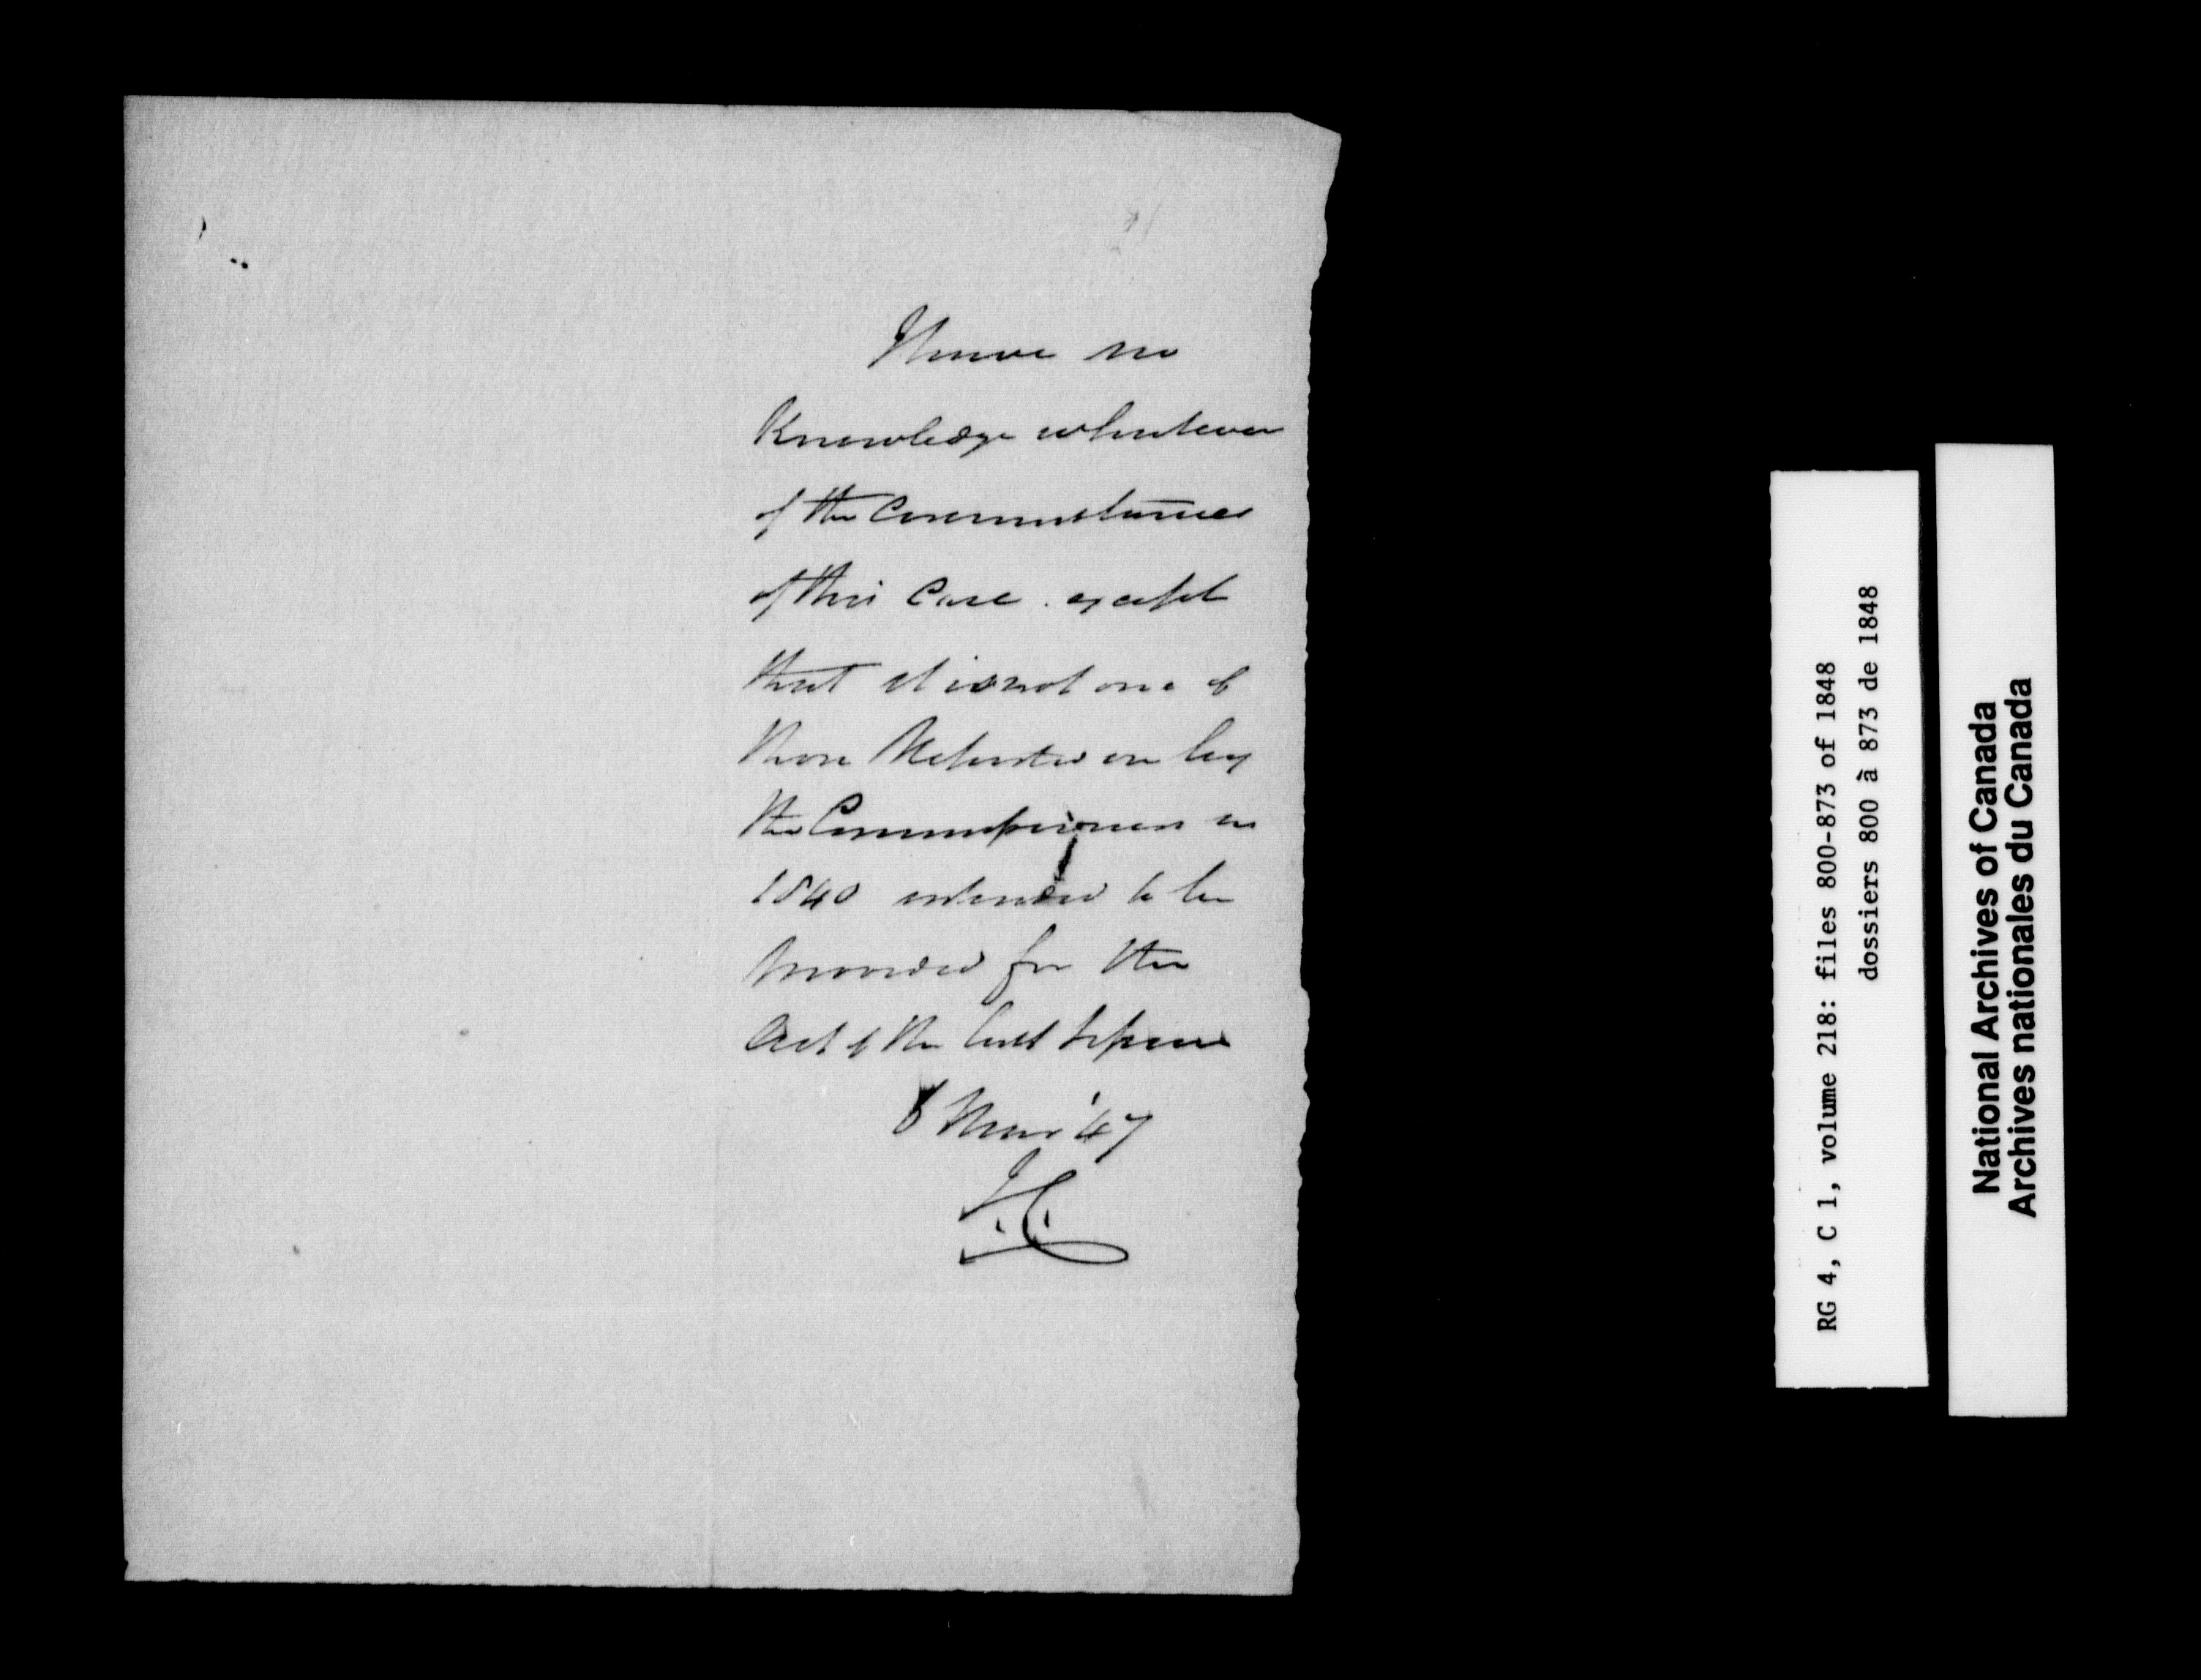 I have no
Knowledge whatever
of the Circumstances
of this Case. except
that it is not one of
those Reported on by
the Commissioners in
1840 intended to be
provided for the
Act of the last Session
8 Mar '47
J.C.
RG 4, C 1, volume 218: files 800-873 of 1848
dossiers 800 à 873 de 1848
National Archives of Canada
Archives nationales du Canada